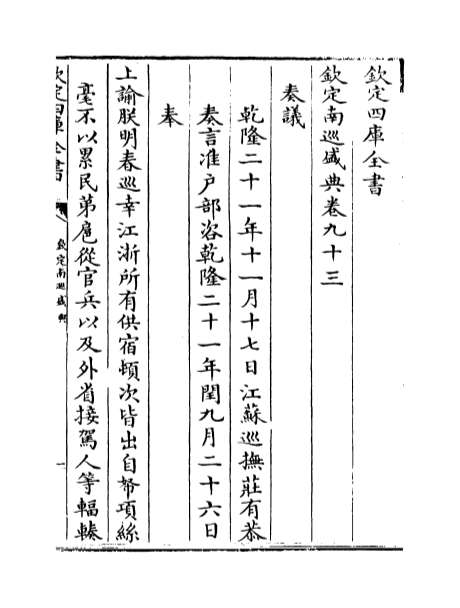 欽定四庫全書
欽定南巡盛典卷九十三
奏議
乾隆二十一年十一月十七日江蘇巡撫莊有恭
奏言准户部咨乾隆二十一年閏九月二十六日
奉
上諭朕明春巡幸江浙所有供宿頓次皆出自帑項絲
毫不以累民第扈從官兵以及外省接駕人等輻輳
欽定四庫全書
欽定南巡盛典
一